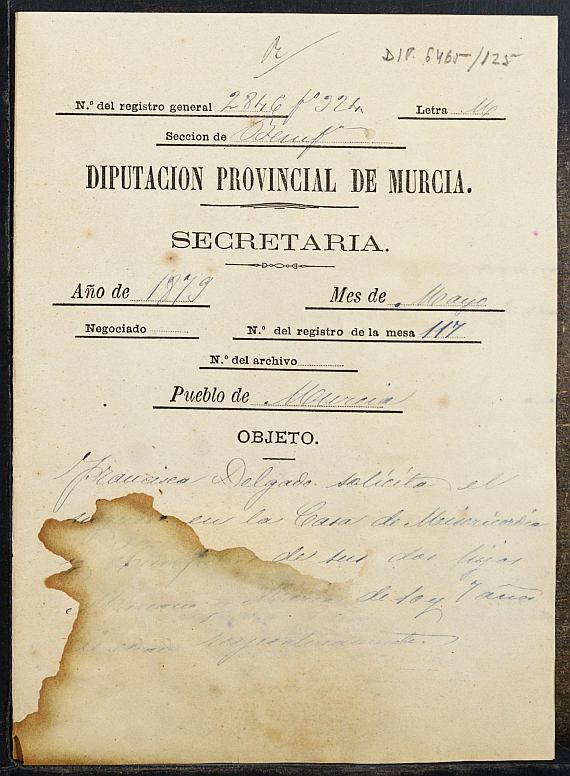 DIP. 6465/125
N.º del registro general 2846 fº 324
Letra M
Seccion de Benefª
DIPUTACION PROVINCIAL DE MURCIA.
SECRETARIA.
Año de 1879
Mes de Mayo
Negociado
N.º del registro de la mesa 117
N.º del archivo
Pueblo de Murcia
OBJETO.
Francisca Delgado solicita el
en la Casa de Misericordia
de sus dos hijos
y de 10 y 7 años
respectivamente.